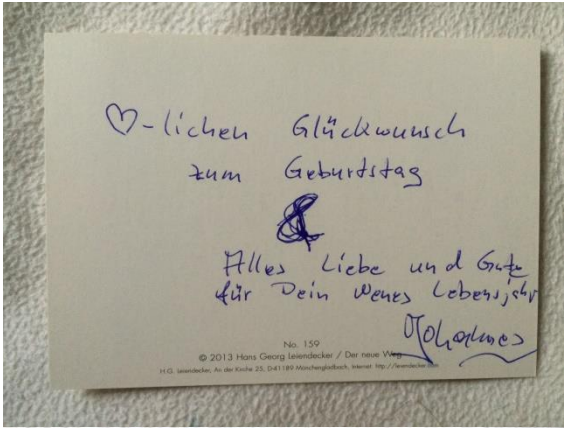 ♡-lichen Glückwunsch
zum Geburtstag
&
Alles Liebe und Gute
für Dein Neues Lebensjahr
Johannes
No. 159
© 2013 Hans Georg Leiendecker / Der neue Weg
H.G. Leiendecker, An der Kirche 25, D-41189 Mönchengladbach, Internet: http://leiendecker.com